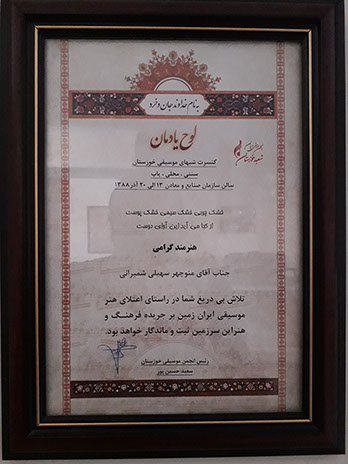 به نام خداوند جان و خرد
لوح یادمان
کنسرت شبهای موسیقی خوزستان
سنتی ، محلی ، پاپ
سالن سازمان صنایع و معادن ۱۳ الی ۲۰ آذر ۱۳۸۸
خشک چوبی خشک سیمی خشک پوست
از کجا می آید این آوای دوست
هنرمند گرامی
جناب آقای منوچهر سهیلی شمیرانی
تلاش بی دریغ شما در راستای اعتلای هنر
موسیقی ایران زمین بر جریده فرهنگ و
هنر این سرزمین ثبت و ماندگار خواهد بود.
رئیس انجمن موسیقی خوزستان
سعید حسین پور